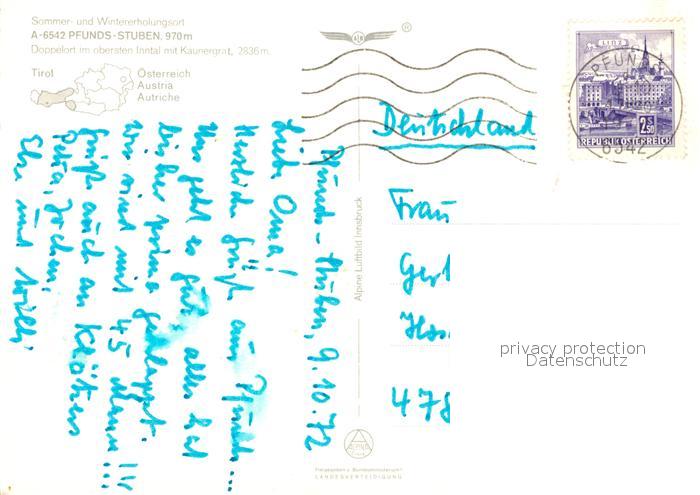 Sommer- und Wintererholungsort
A-6542 PFUNDS-STUBEN, 970 m
Doppelort im obersten Inntal mit Kaunergrat, 2836 m.
Tirol
Österreich
Austria
Autriche
®
LINZ
PFUNDS
6542
2.50
REPUBLIK ÖSTERREICH
Deutschland
Frau
478
privacy protection
Datenschutz
Alpine Luftbild Innsbruck
Freigegeben v. Bundesministerium f.
LANDESVERTEIDIGUNG
Pfunds-Stuben, 9.10.72
Liebe Oma!
Herzliche Grüße aus Pfunds...
Uns geht es gut, alles hat
bisher prima geklappt.
Wir sind mit 45 Mann!!!
Grüße auch an
Petra, Jochen,
und Willi